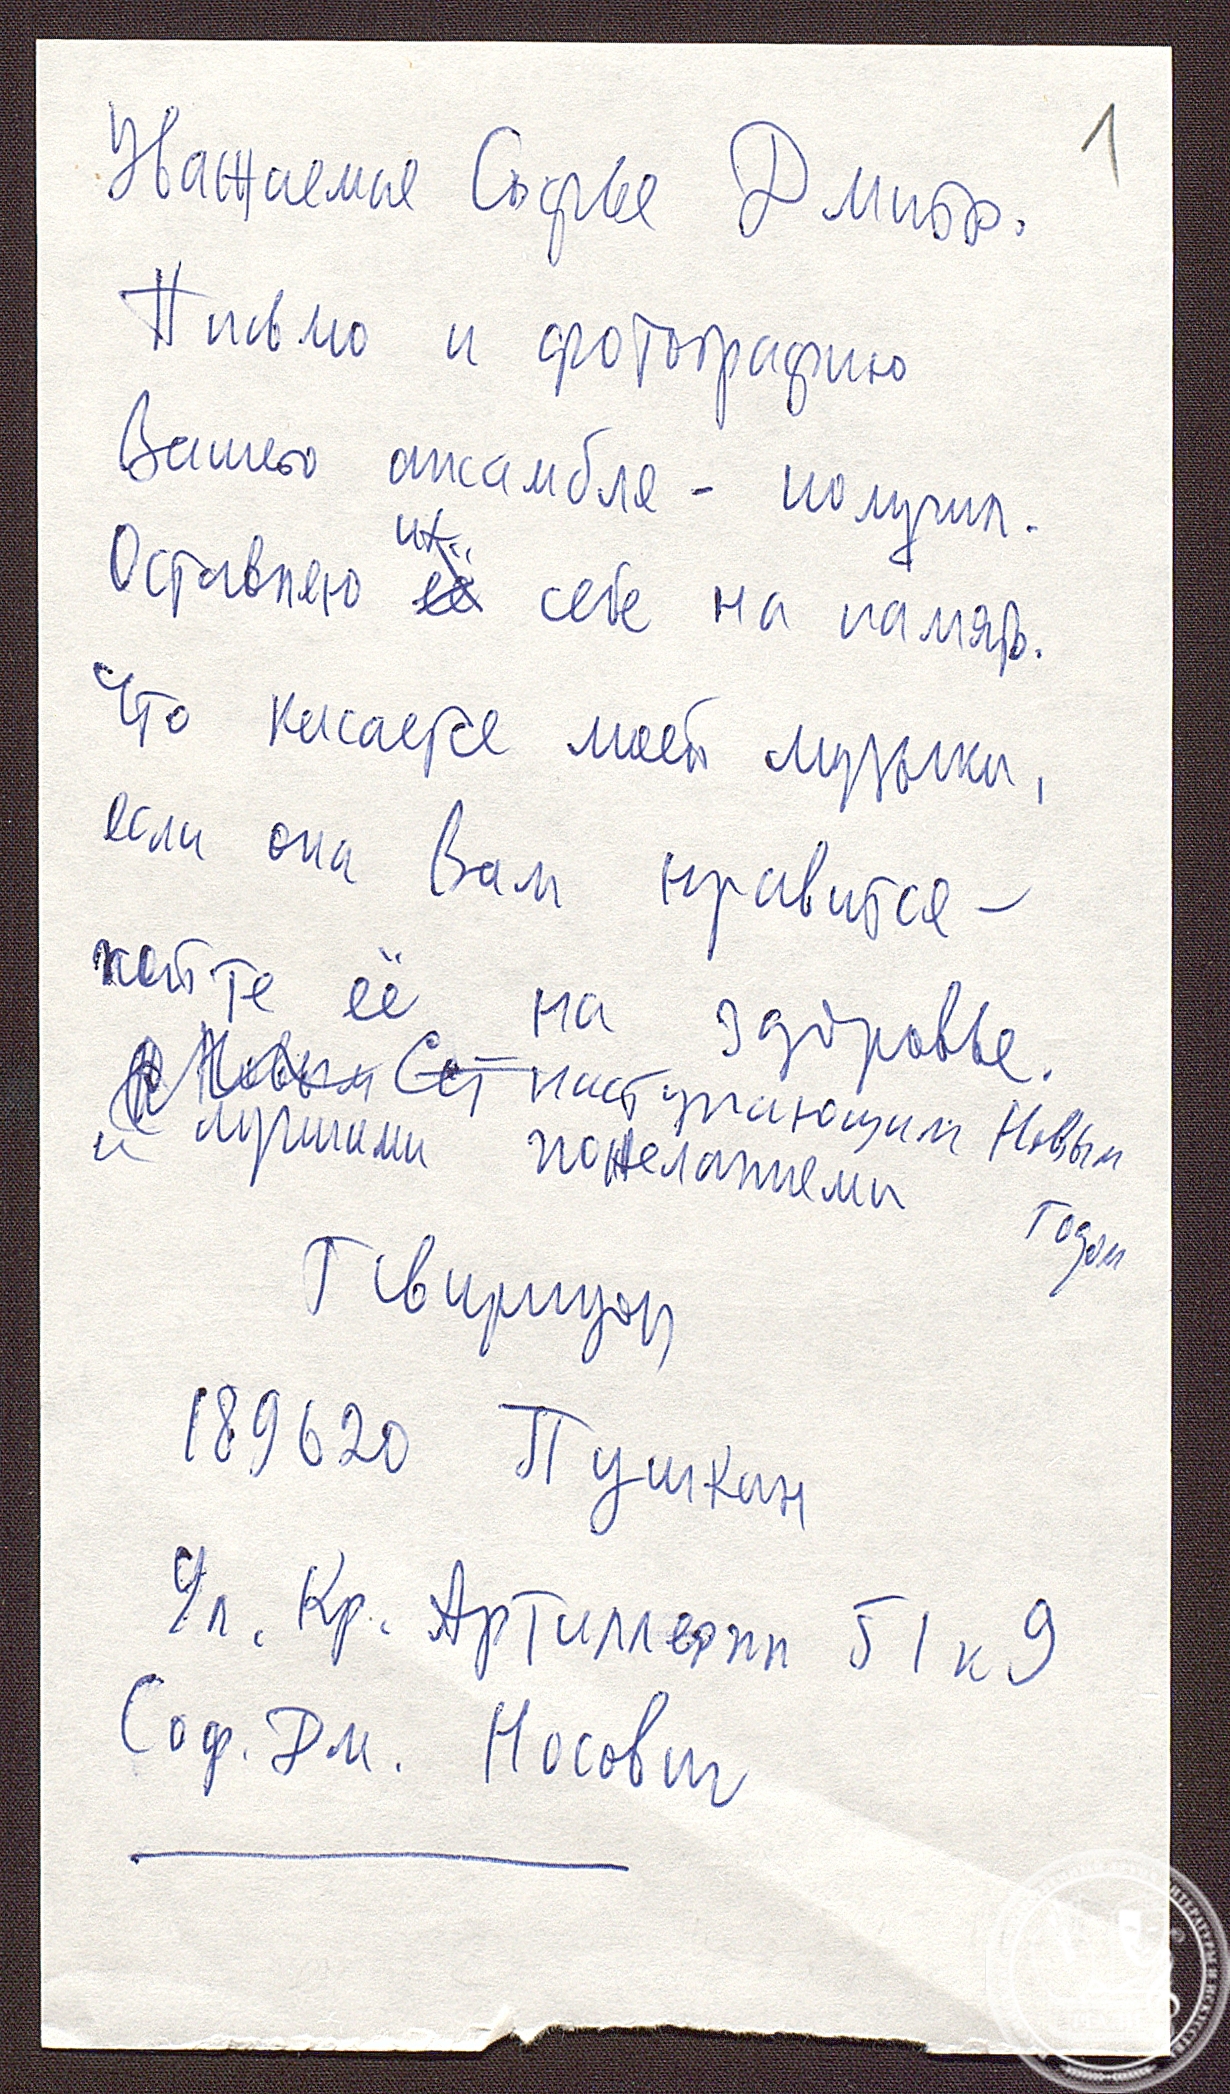 1
Уважаемая Софья Дмитр.
Письмо и фотографию
Вашего ансамбля - получил.
их
Оставляю её себе на память.
Что касается моей музыки,
если она Вам нравится –
пойте её на здоровье.
С Новым С наступающим Новым
годом
и лучшими пожеланиями
Г Свиридов
189620 Пушкин
Ул. Кр. Артиллерии 51 к 9
Соф. Дм. Носович